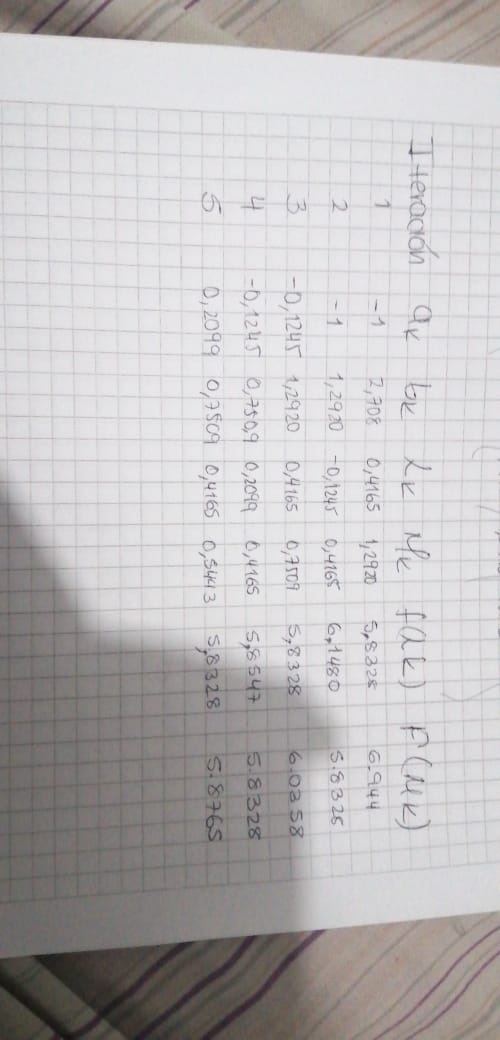 Iteración aₖ bₖ λₖ Mₖ f(λk) F(Mₖ)
1 -1 2,708 0,4165 1,2920 5,8328 6.944
2 -1 1,2920 -0,1245 0,4165 6,1480 5.8328
3 -0,1245 1,2920 0,4165 0,7509 5,8328 6.0358
4 -0,1245 0,750,9 0,2099 0,4165 5,8547 5.8328
5 0,2099 0,7509 0,4165 0,5443 5,8328 5.8765